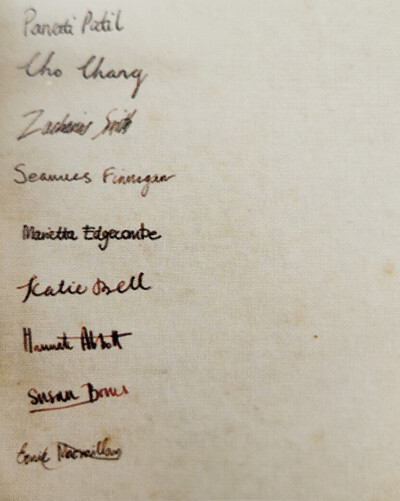 Parvati Patil
Cho Chang
Zacharias Smith
Seamus Finnigan
Marietta Edgecombe
Katie Bell
Hannah Abbott
Susan Bones
Ernie Macmillan